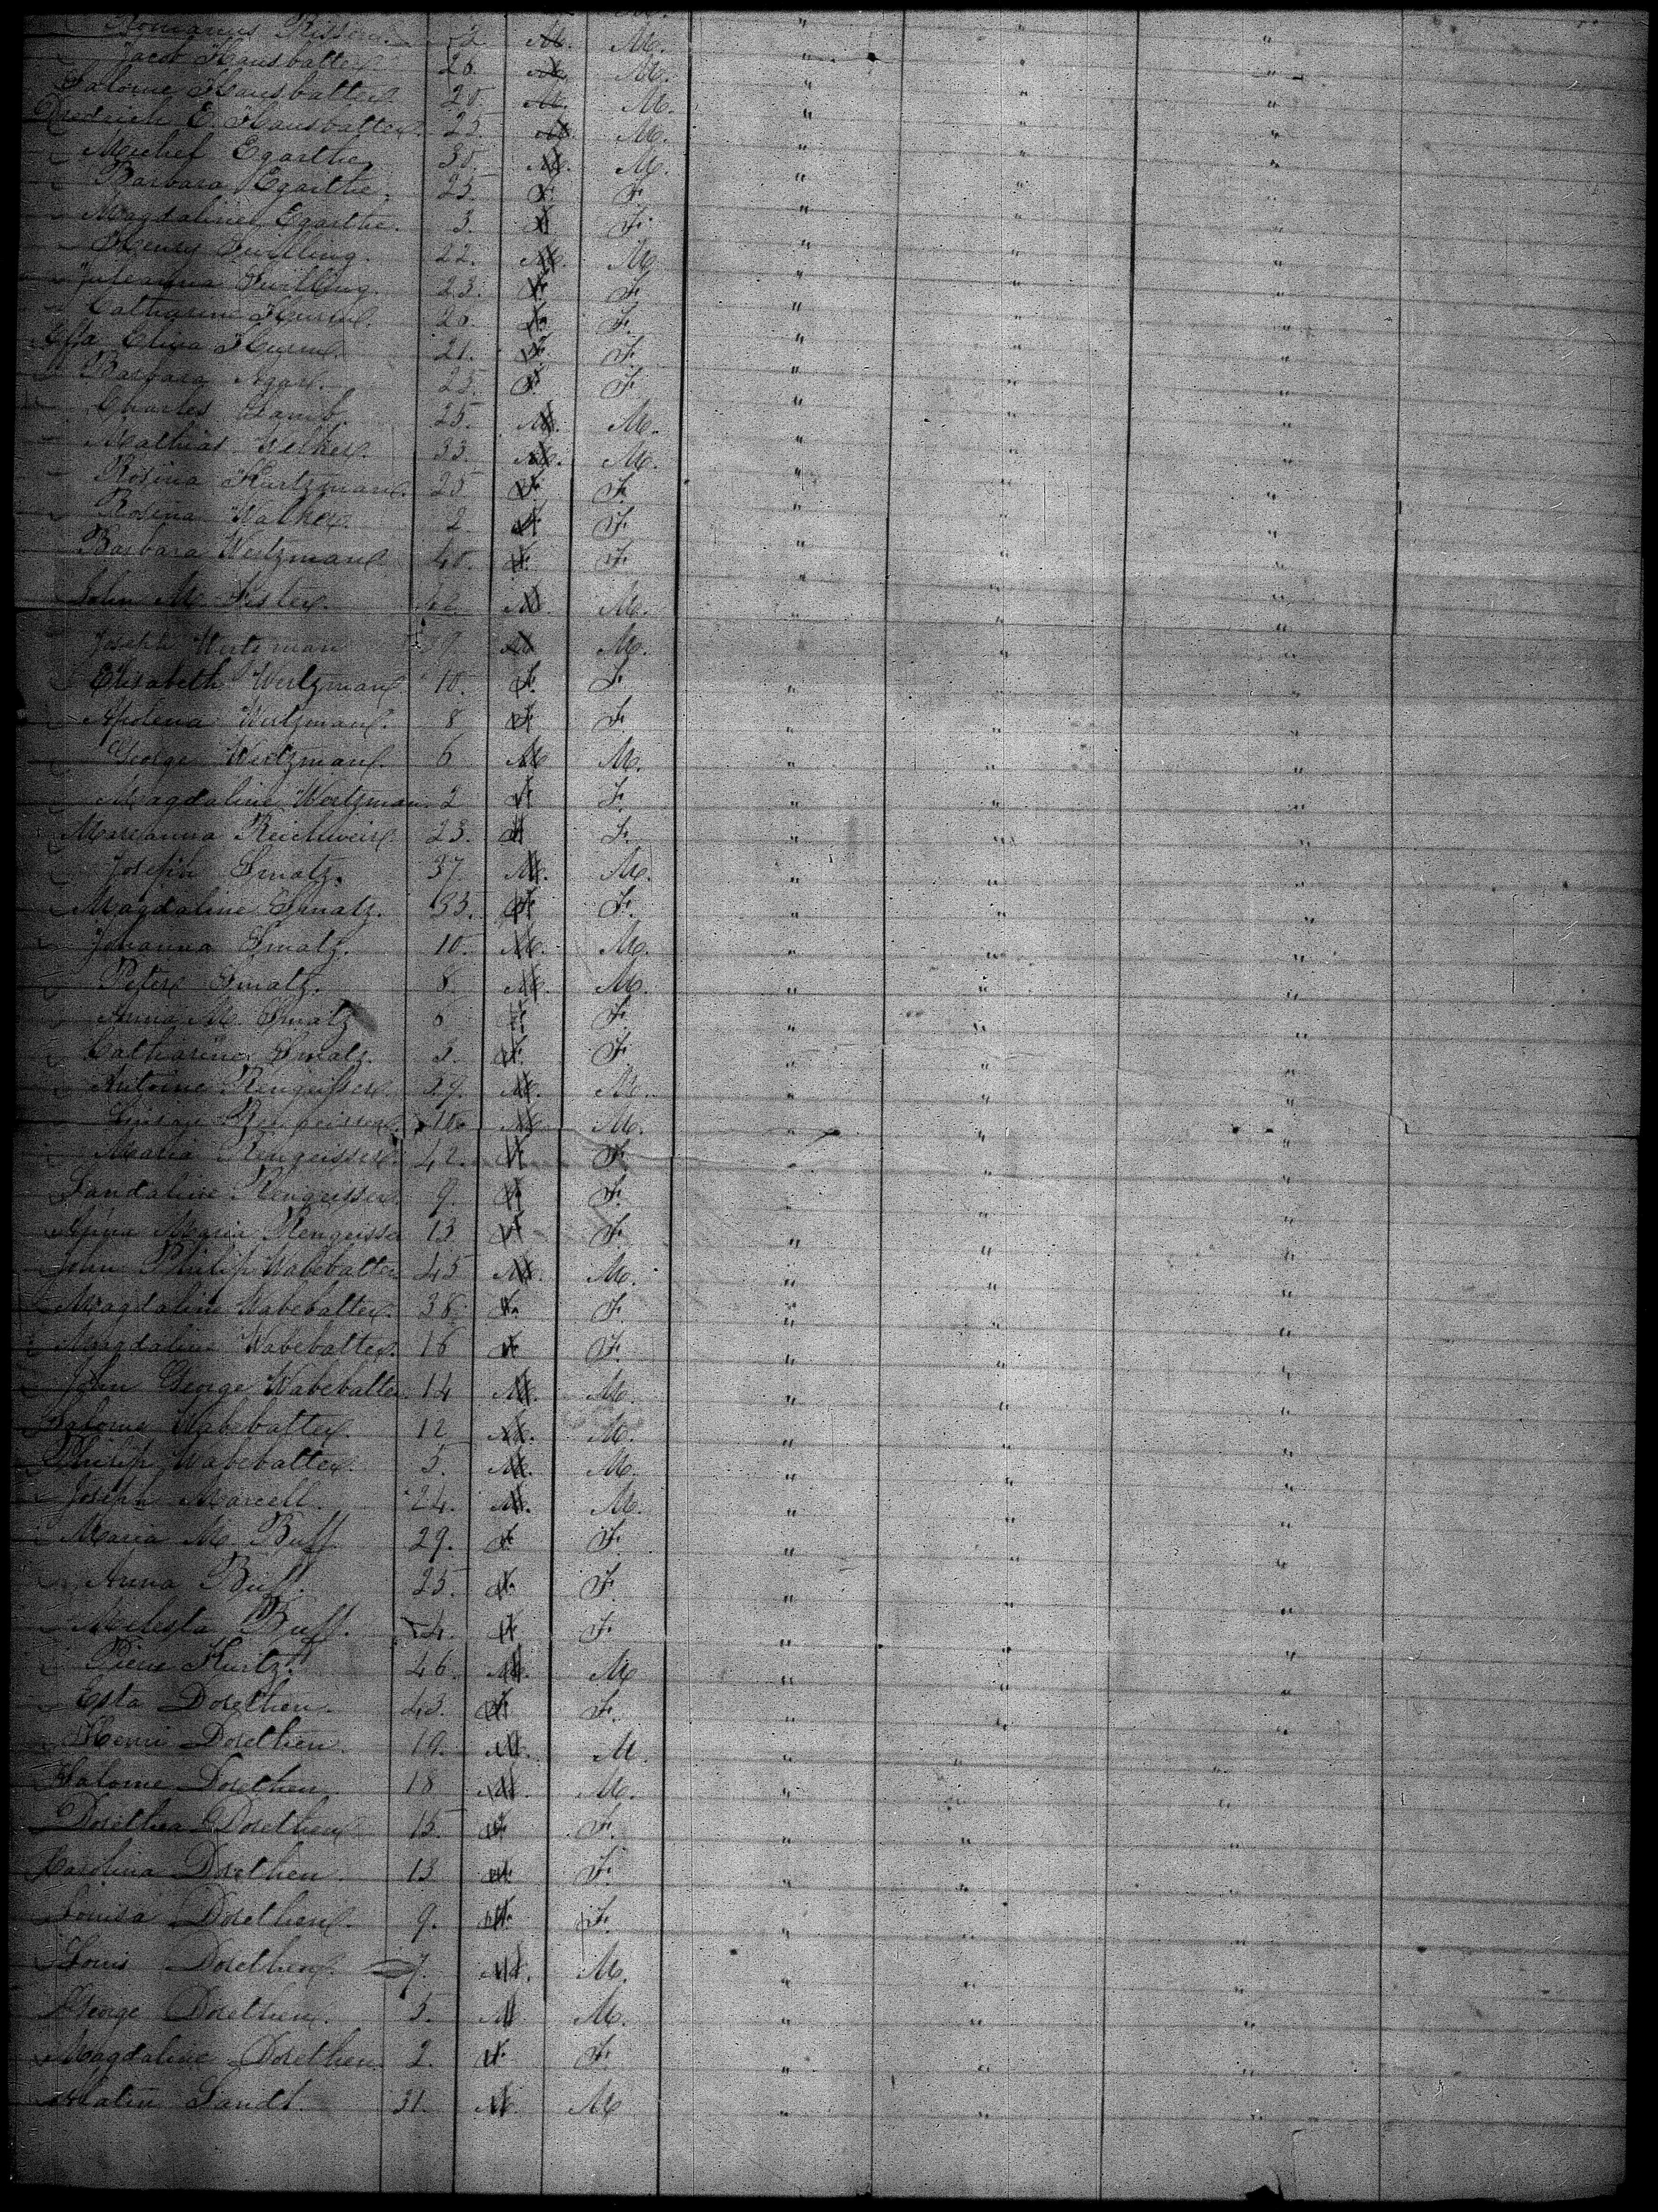 Romanus Risser. 2 M. M. " " "
Jacob Hausbatter 20. M. M. " " "
Salome Hausbatter 20. M. M. " " "
Fredrich E. Hausbatter. 25. M. M. " " "
Michel Egarthe 30. M. M. " " "
Barbara Egarthe. 25 F. F. " " "
Magdaline Egarthe. 3. F F. " " "
Henry 22. M. M. " " "
23. F. F. " " "
Catharine 20. F. F. " " "
Eliza 21. F. F. " " "
Barbara 25. F. F. " " "
Charles Lamb. 25. M. M. " " "
Mathias Welker. 33. M. M. " " "
Rosina Kurtzman. 25 F. F. " " "
Rosina Walker. 2 F. F. " " "
Barbara Wertzman 40. F. F. " " "
John M. Fister. M. M. " " "
Joseph Wertzman 39. M M. " " "
Elisabeth Wertzman 10. F. F. " " "
Apolena Wertzman. 8 F F. " " "
George Wertzman. 6 M M. " " "
Magdaline Wertzman. 2 F F. " " "
Mareanna Reichweir. 23. F F. " " "
Joseph Smatz. 37. M. M. " " "
Magdaline Smatz. 35. F F. " " "
Johanna Smatz. 10. M. M. " " "
Peter Smatz. 8. M. M. " " "
Anna M. Smatz 6 F F. " " "
Catharine Smatz. 3. F. F. " " "
Antoine Rengeisser 39. M. M. " " "
10. M. M. " " "
Maria Rengeisser. 42. F. F. " " "
Landaline Rengeisser. 9. F F. " " "
Anna Maria Rengeisser 13. F F. " " "
John Philip Wabebatter 45 M. M. " " "
Magdaline Wabebatter. 38. F. F. " " "
Magdaline Wabebatter. 16 F F. " " "
John George Wabebatter 14 M. M. " " "
Salome Wabebatter. 12 M. M. " " "
Philip Wabebatter. 5. M. M. " " "
Joseph Marcell. 24. M. M. " " "
Maria M Buff. 29. F. F. " " "
Anna Buff. 25. F. F. " " "
Buff. 4. F. F. " " "
Piere Kurtz. 26. M. M " " "
Esta Dorethen. 43. F F. " " "
Henri Dorethen. 19. M. M. " " "
Salome Dorethen 18 M. M. " " "
Dorethea Dorethen 15. F. F. " " "
Carolina Dorethen. 13 F. F. " " "
Louisa Dorethen. 9. F. F. " " "
Louis Dorethen. 7. M. M. " " "
George Dorethen. 5. M M. " " "
Magdaline Dorethen 2. F. F. " " "
Landt. 31. M. M " " "